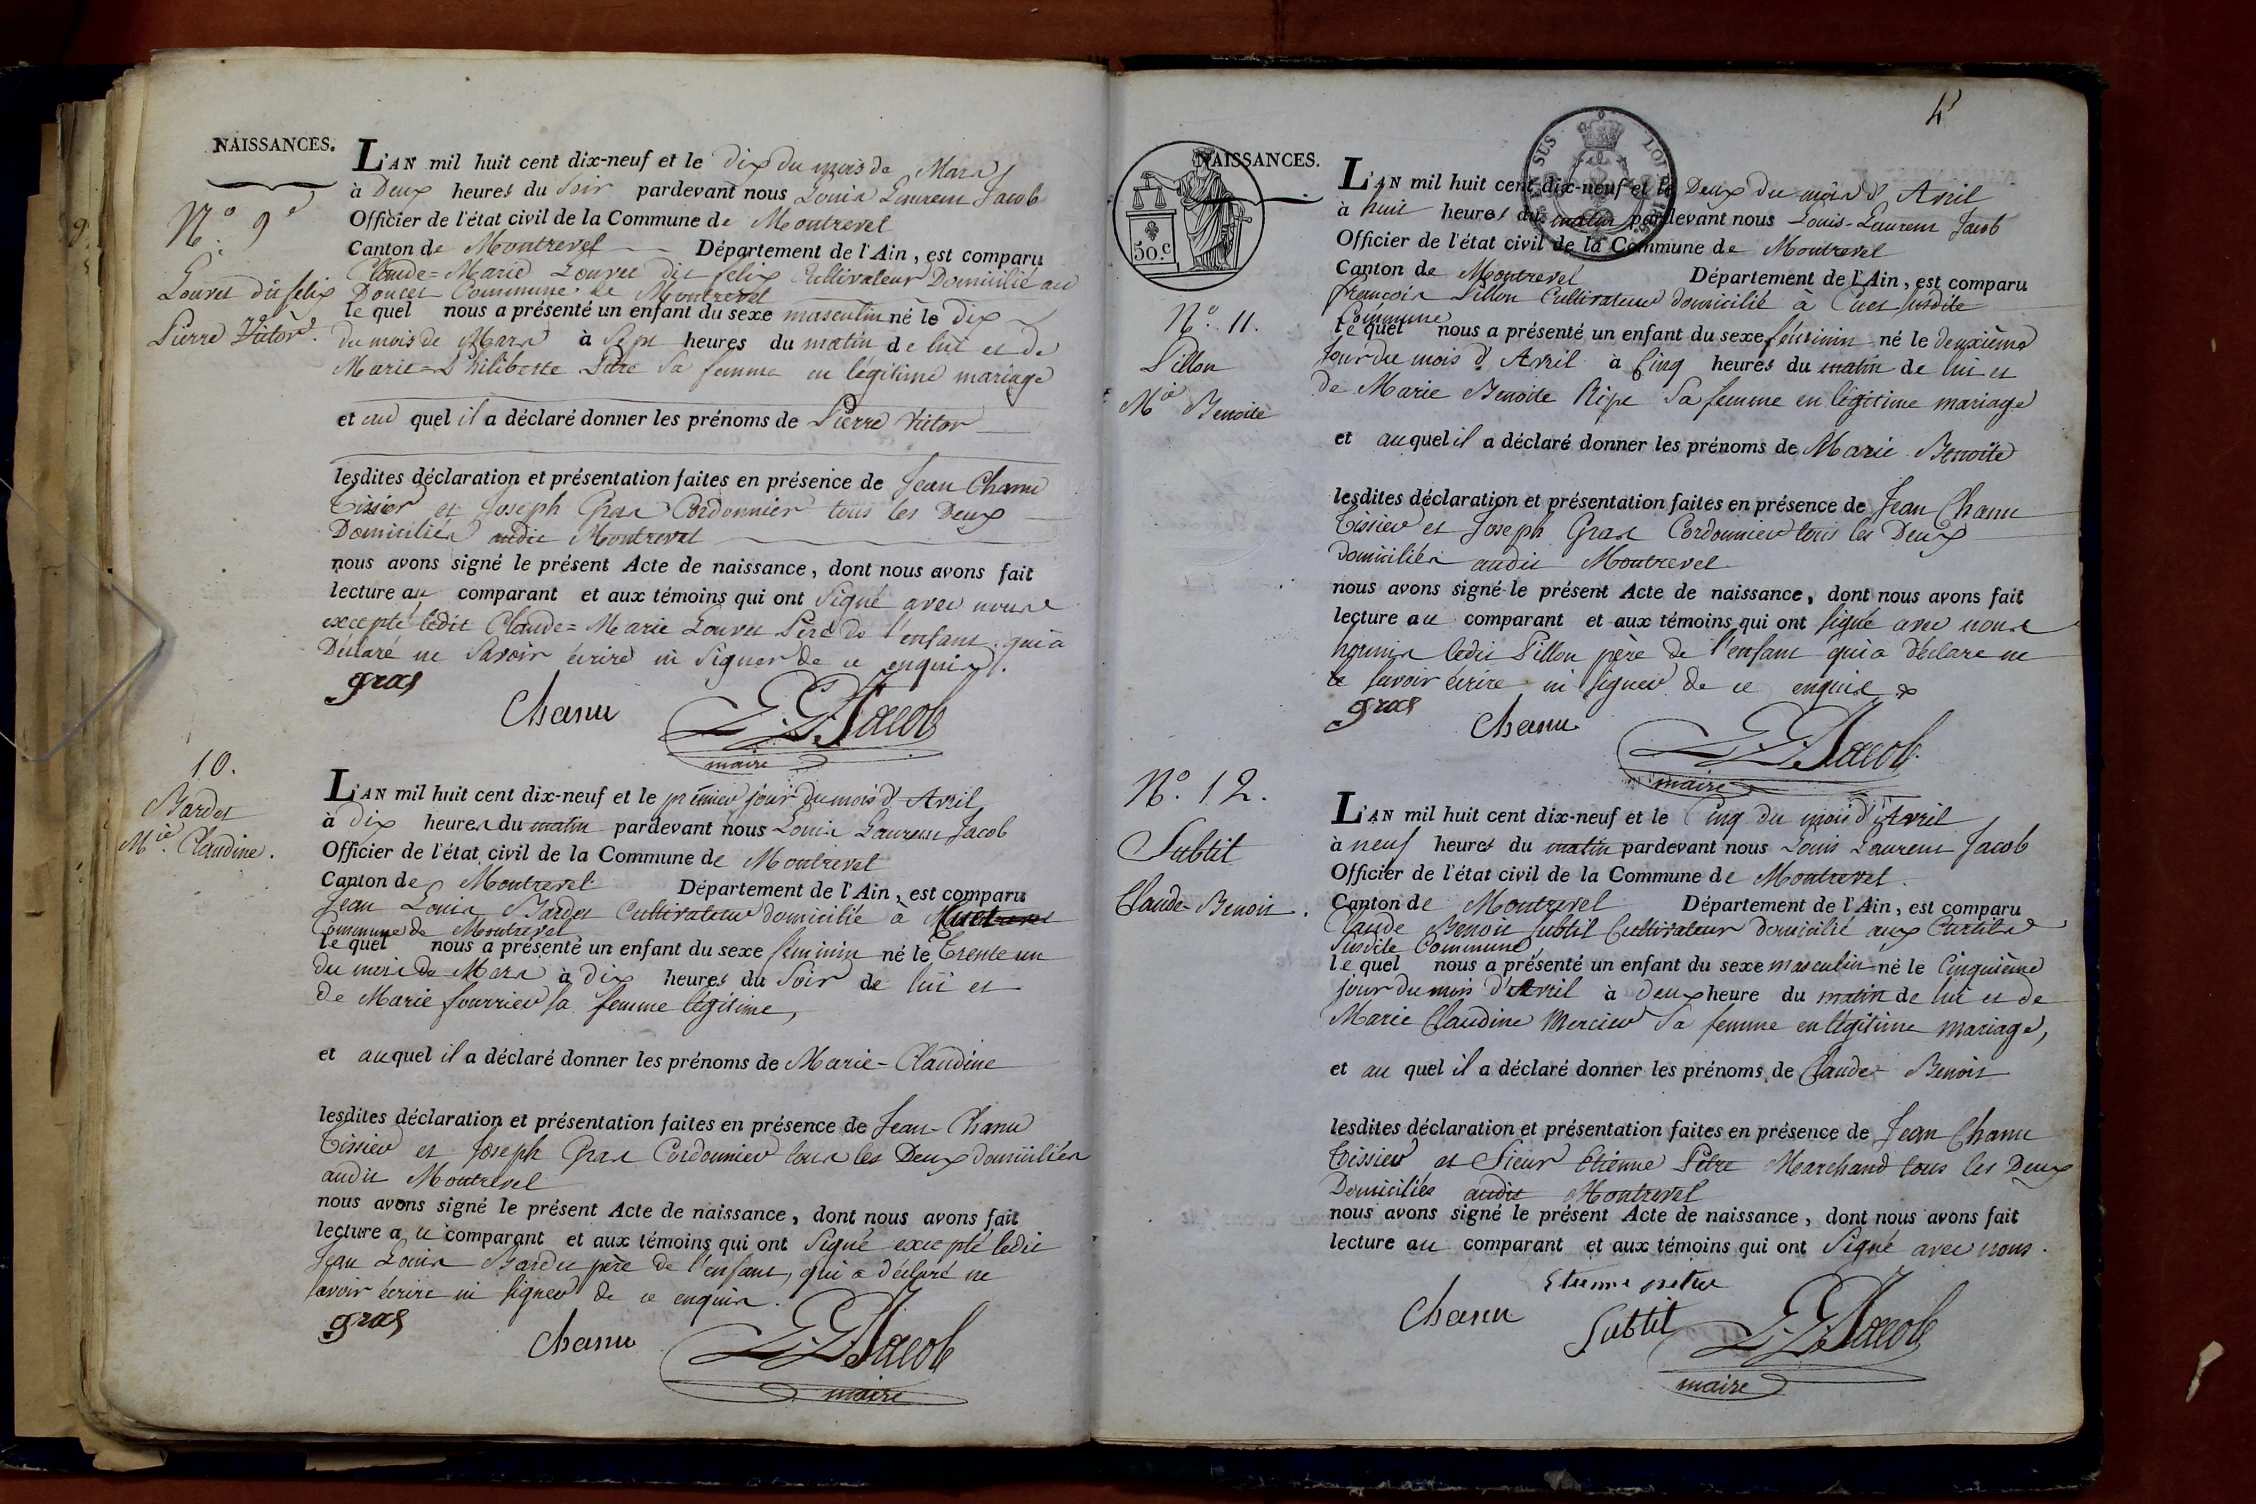 NAISSANCES.
L'AN mil huit cent dix-neuf et le dix du mois de Mars
à Deux heures du Soir pardevant nous Louis Laurent Jacob
Officier de l'état civil de la Commune de Montrevel
Canton de Montrevel Département de l'Ain, est comparu
Claude-Marie Louvet dit felix Cultivateur Domicilié au
Doucet Commune de Montrevel
le quel nous a présenté un enfant du sexe masculin né le dix
du mois de Mars à Sept heures du matin de lui et de
Marie-Philiberte Pitre Sa femme en légitime mariage
et au quel il a déclaré donner les prénoms de Pierre Victor
lesdites déclaration et présentation faites en présence de Jean Chanu
Tissier et Joseph Gras Cordonnier tous les Deux
Domiciliés audit Montrevel
nous avons signé le présent Acte de naissance, dont nous avons fait
lecture au comparant et aux témoins qui ont Signé avec nous
excepté ledit Claude=Marie Louvet Père de l'enfant qui a
Déclaré ne Savoir écrire ni Signer de ce enquis.
gras
Chanu
L. L. Jacob
maire
N.º 9
Louvet dit felix
Pierre Victor.
L'AN mil huit cent dix-neuf et le premier jour du mois d'Avril
à Dix heures du matin pardevant nous Louis Laurent Jacob
Officier de l'état civil de la Commune de Montrevel
Canton de Montrevel Département de l'Ain, est comparu
Jean Louis Bardet Cultivateur domicilié à
Commune de Montrevel
le quel nous a présenté un enfant du sexe feminin né le Trente un
du mois de Mars à dix heures du Soir de lui et
de Marie fourrier sa femme légitime,
et au quel il a déclaré donner les prénoms de Marie-Claudine
lesdites déclaration et présentation faites en présence de Jean-Chanu
Tissier et Joseph Gras Cordonnier tous les Deux domiciliés
audit Montrevel
nous avons signé le présent Acte de naissance, dont nous avons fait
lecture au comparant et aux témoins qui ont Signé excepté ledit
Jean Louis Bardet père de l'enfant, qui a déclaré ne
savoir écrire ni signer de ce enquis.
gras
Chanu
L. L. Jacob
maire
10.
Bardet
Mie. Claudine.
4
NAISSANCES.
50.c
SUS
LOI
L'AN mil huit cent dix-neuf et le Deux du mois d'Avril
à huit heures du matin pardevant nous Louis-Laurent Jacob
Officier de l'état civil de la Commune de Montrevel
Canton de Montrevel Département de l'Ain, est comparu
françois Pillon Cultivateur domicilié à Cuet susdite
Commune
le quel nous a présenté un enfant du sexe féminin né le deuxième
Jour du mois d'Avril à Cinq heures du matin de lui et
de Marie Benoite Ripe Sa femme en légitime mariage
et au quel il a déclaré donner les prénoms de Marie Benoite
lesdites déclaration et présentation faites en présence de Jean Chanu
Tissier et Joseph Gras Cordonnier tous les Deux
domiciliés audit Montrevel
nous avons signé le présent Acte de naissance, dont nous avons fait
lecture au comparant et aux témoins qui ont signé avec nous
hormis ledit Pillon père de l'enfant qui a déclaré ne
savoir écrire ni signer de ce enquis
gras
Chanu
L. L. Jacob
maire
N.º 11.
Pillon
Mie Benoite
L'AN mil huit cent dix-neuf et le Cinq du mois d'Avril
à neuf heures du matin pardevant nous Louis Laurent Jacob
Officier de l'état civil de la Commune de Montrevel.
Canton de Montrevel Département de l'Ain, est comparu
Claude Benoit Subtil Cultivateur domicilié aux Curtils
Susdite Commune
le quel nous a présenté un enfant du sexe masculin né le Cinquième
jour du mois d'Avril à deux heure du matin de lui et de
Marie Claudine Mercier Sa femme en légitime mariage,
et au quel il a déclaré donner les prénoms de Claude-Benoit
lesdites déclaration et présentation faites en présence de Jean Chanu
Tissier et Sieur Etienne Pitre Marchand tous les Deux
Domiciliés audit Montrevel
nous avons signé le présent Acte de naissance, dont nous avons fait
lecture au comparant et aux témoins qui ont Signé avec nous.
Etienne pitre
Chanu
Subtil
L. L. Jacob
maire
N.º 12.
Subtil
Claude-Benoit.